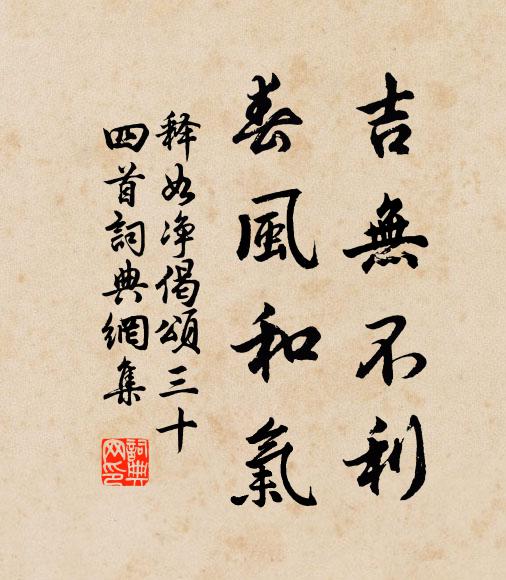 吉無不利
春風和氣
释如净偈頌三十
四首詞典網集
詞典网印